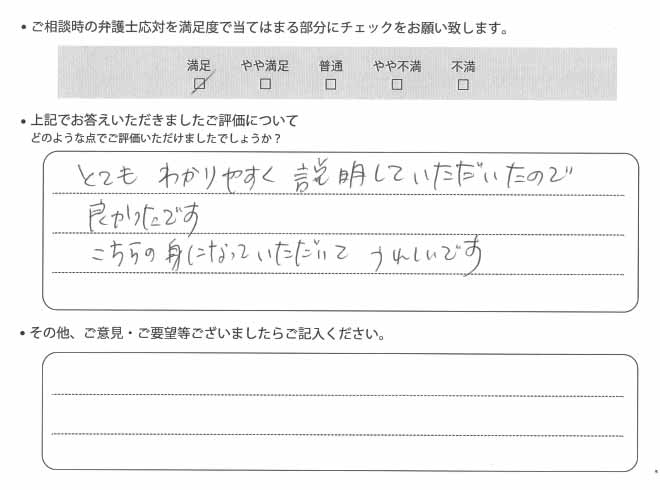 ・ご相談時の弁護士応対を満足度で当てはまる部分にチェックをお願い致します。
満足 やや満足 普通 やや不満 不満
・上記でお答えいただきましたご評価について
どのような点でご評価いただけましたでしょうか？
とても わかりやすく 説明していただいたので
良かったです
こちらの身になっていただいて うれしいです
・その他、ご意見・ご要望等ございましたらご記入ください。